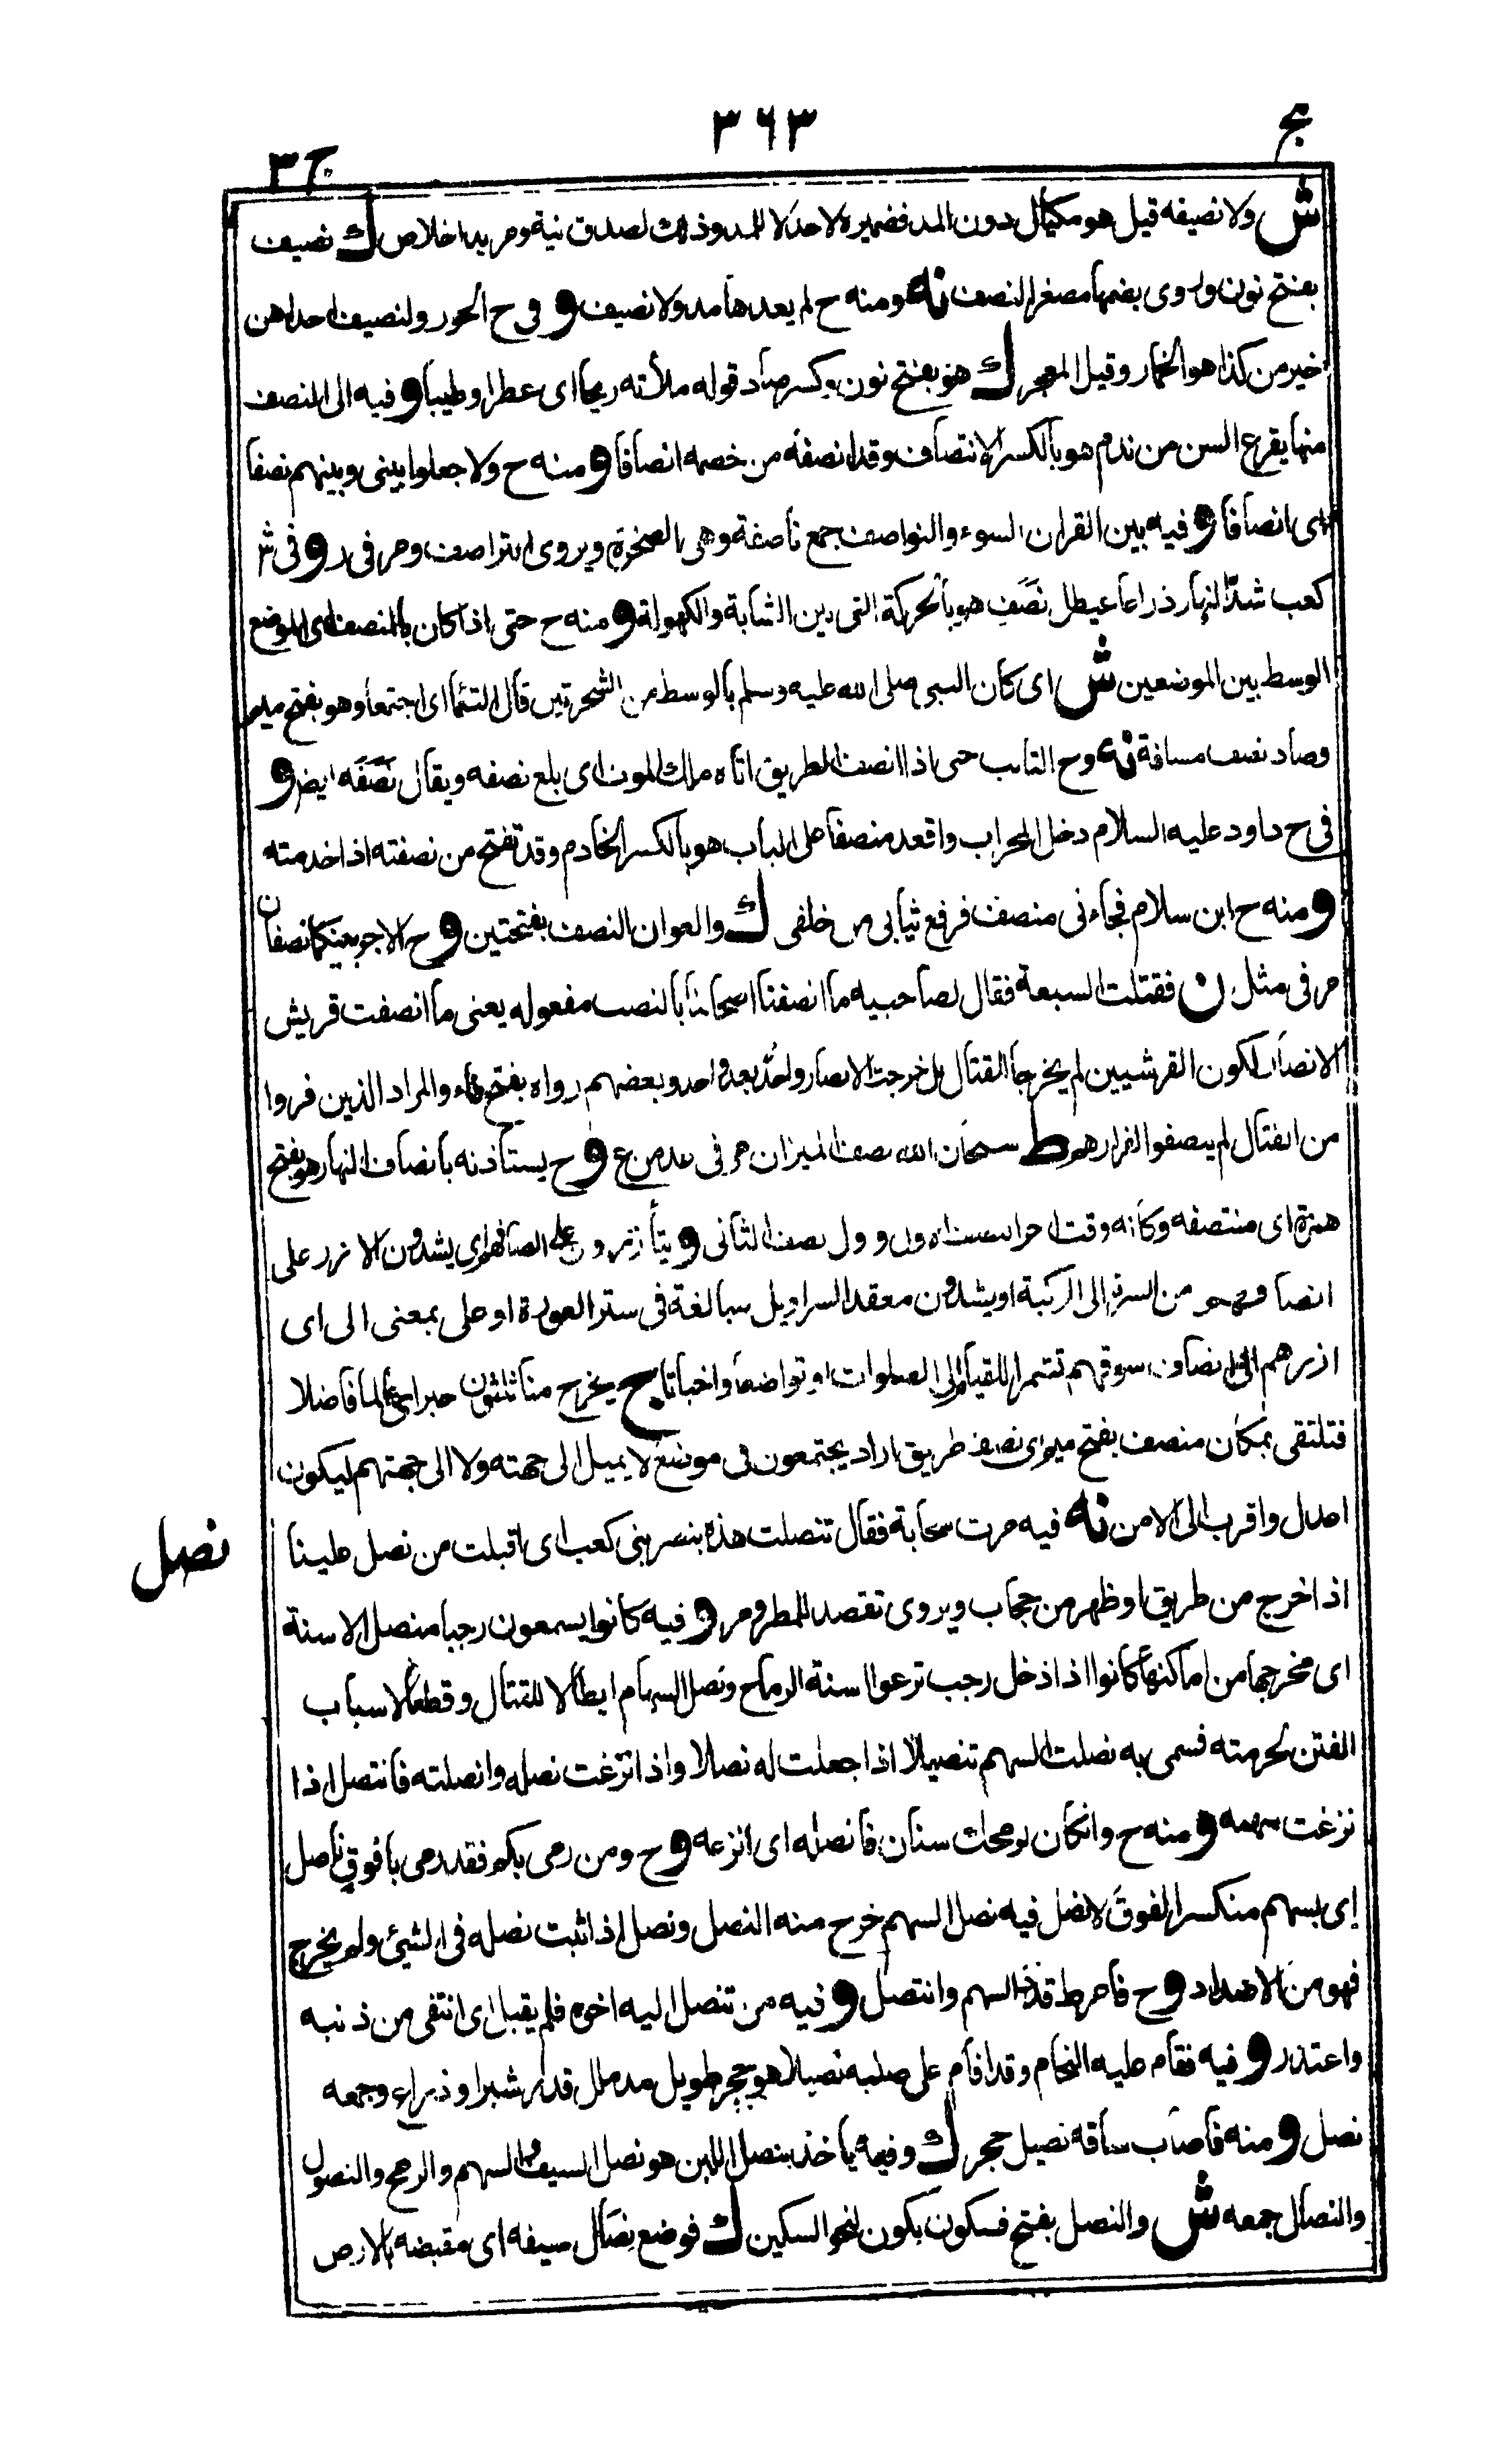 بج
٣٦٣
ج ٣
ش ولا نصيفه قيل هو مكيال دون المد فضميره لاحد لا للمد وذلك لصدق نية ومزيد اخلاص ك نصيف
بفتح نون وروى بضمها مصغر النصف نه ومنه ح لم يعدها مد ولا نصيف و فى ح الحور ولنصيف احداهن
خير من كذا هو الخمار وقيل المعجر ك هو بفتح نون وكسر صاد قوله ملأته ريحا اى عطرا وطيبا و فيه الى النصف
منها يقرع السن من ندم هو بالكسر الانتصاف وقد انصفه من خصمه انصافا و منه ح ولا جعلوا بينى وبينهم نصفا
اى انصافا و فيه بين القران السوء والنواصف جمع ناصفة وهى الصخرة ويروى التراصف ومر فى ر و فى ش
كعب شد النهار ذراعا عيطل نصف هو بالحركة التى بين الشابة والكهولة و منه ح حتى اذا كان بالمنصف اى الموضع
الوسط بين الموضعين ش اى كان النبى صلى الله عليه وسلم بالوسط من الشجرتين قال التئما اى اجتمعا وهو بفتح ميم
وصاد نصف مسافة نه وح التائب حتى اذا انصف الطريق اتاه ملك الموت اى بلغ نصفه ويقال نصفه ايض و
فى ح داود عليه السلام دخل المحراب واقعد منصفا على الباب هو بالكسر الخادم وقد تفتح من نصفته اذا خدمته
و منه ح ابن سلام فجاءنى منصف فرفع ثيابى من خلفى ك والعوان النصف بفتحتين و ح الاجر بينكما نصفان
مر فى مثل ن فقتلت السبعة فقال لصاحبيه ما انصفنا اصحابنا بالنصب مفعوله يعنى ما انصفت قريش
الانصار لكون القرشيين لم يخرجا القتال بل خرجت الانصار واحد بعد واحد وبعضهم رواه بفتح فاء والمراد الذين فروا
من القتال لم ينصفوا لفرارهم ط سبحان الله نصف الميزان مر فى من ع و ح يستأذنه بانصاف النهار هو بفتح
همزة اى منتصفه وكأنه وقت اخر النصف الاول و اول نصف الثانى و يتأزرون على انصافهم اى يشدون الازر على
انصافهم من السرة الى الركبة او يشدون معقد السراويل مبالغة فى ستر العورة او على بمعنى الى اى
ازرهم الى انصاف سوقهم تشمرا للقيام الى الصلوات او تواضعا واخباتا بج يخرج منا ثلثون حبرا اى عالما فاضلا
فتلتقى بمكان منصف بفتح ميم اى نصف طريق اراد يجتمعون فى موضع لا يميل الى جهته ولا الى جهتهم ليكون
اعدل واقرب الى الامن نه فيه مرت سحابة فقال تنصلت هذه بنصر بنى كعب اى اقبلت من نصل علينا
نصل
اذا خرج من طريق او ظهر من حجاب ويروى تقصد للمطر ومر و فيه كانوا يسمعون رجبا منصل الاسنة
اى مخرجها من اماكنها كانوا اذا دخل رجب نزعوا السنة الرماح ونصل السهام ابطالا للقتال وقطعا لاسباب
الفتن لحرمته فسمى به نصلت السهم تنصيلا اذا جعلت له نصلا واذا نزعت نصله وانصلته فانتصل اذا
نزعت سهمه و منه ح وان كان لرمحك سنان فانصله اى انزعه و ح ومن رمى بكم فقد رمى بافوق ناصل
اى بسهم منكسر الفوق لا نصل فيه نصل السهم خرج منه النصل ونصل اذا ثبت نصله فى الشئ ولم يخرج
فهو من الاضداد و ح فامرط قذذ السهم وانتصل و فيه من تنصل اليه اخوه فلم يقبل اى انتفى من ذنبه
واعتذر و فيه فقام عليه النحام وقد اقام على صلبه نصيلا هو حجر طويل مدملك قدر شبرا وذراع وجمعه
نصل و منه فاصاب ساقه نصيل حجر ك وفيه ياخذ بنصل اللبن هو نصل السيف والسهم والرمح والنصول
والنصال جمعه ش والنصل بفتح فسكون يكون لنحو السكين ك فوضع نصال سيفه اى مقبضه بالارض